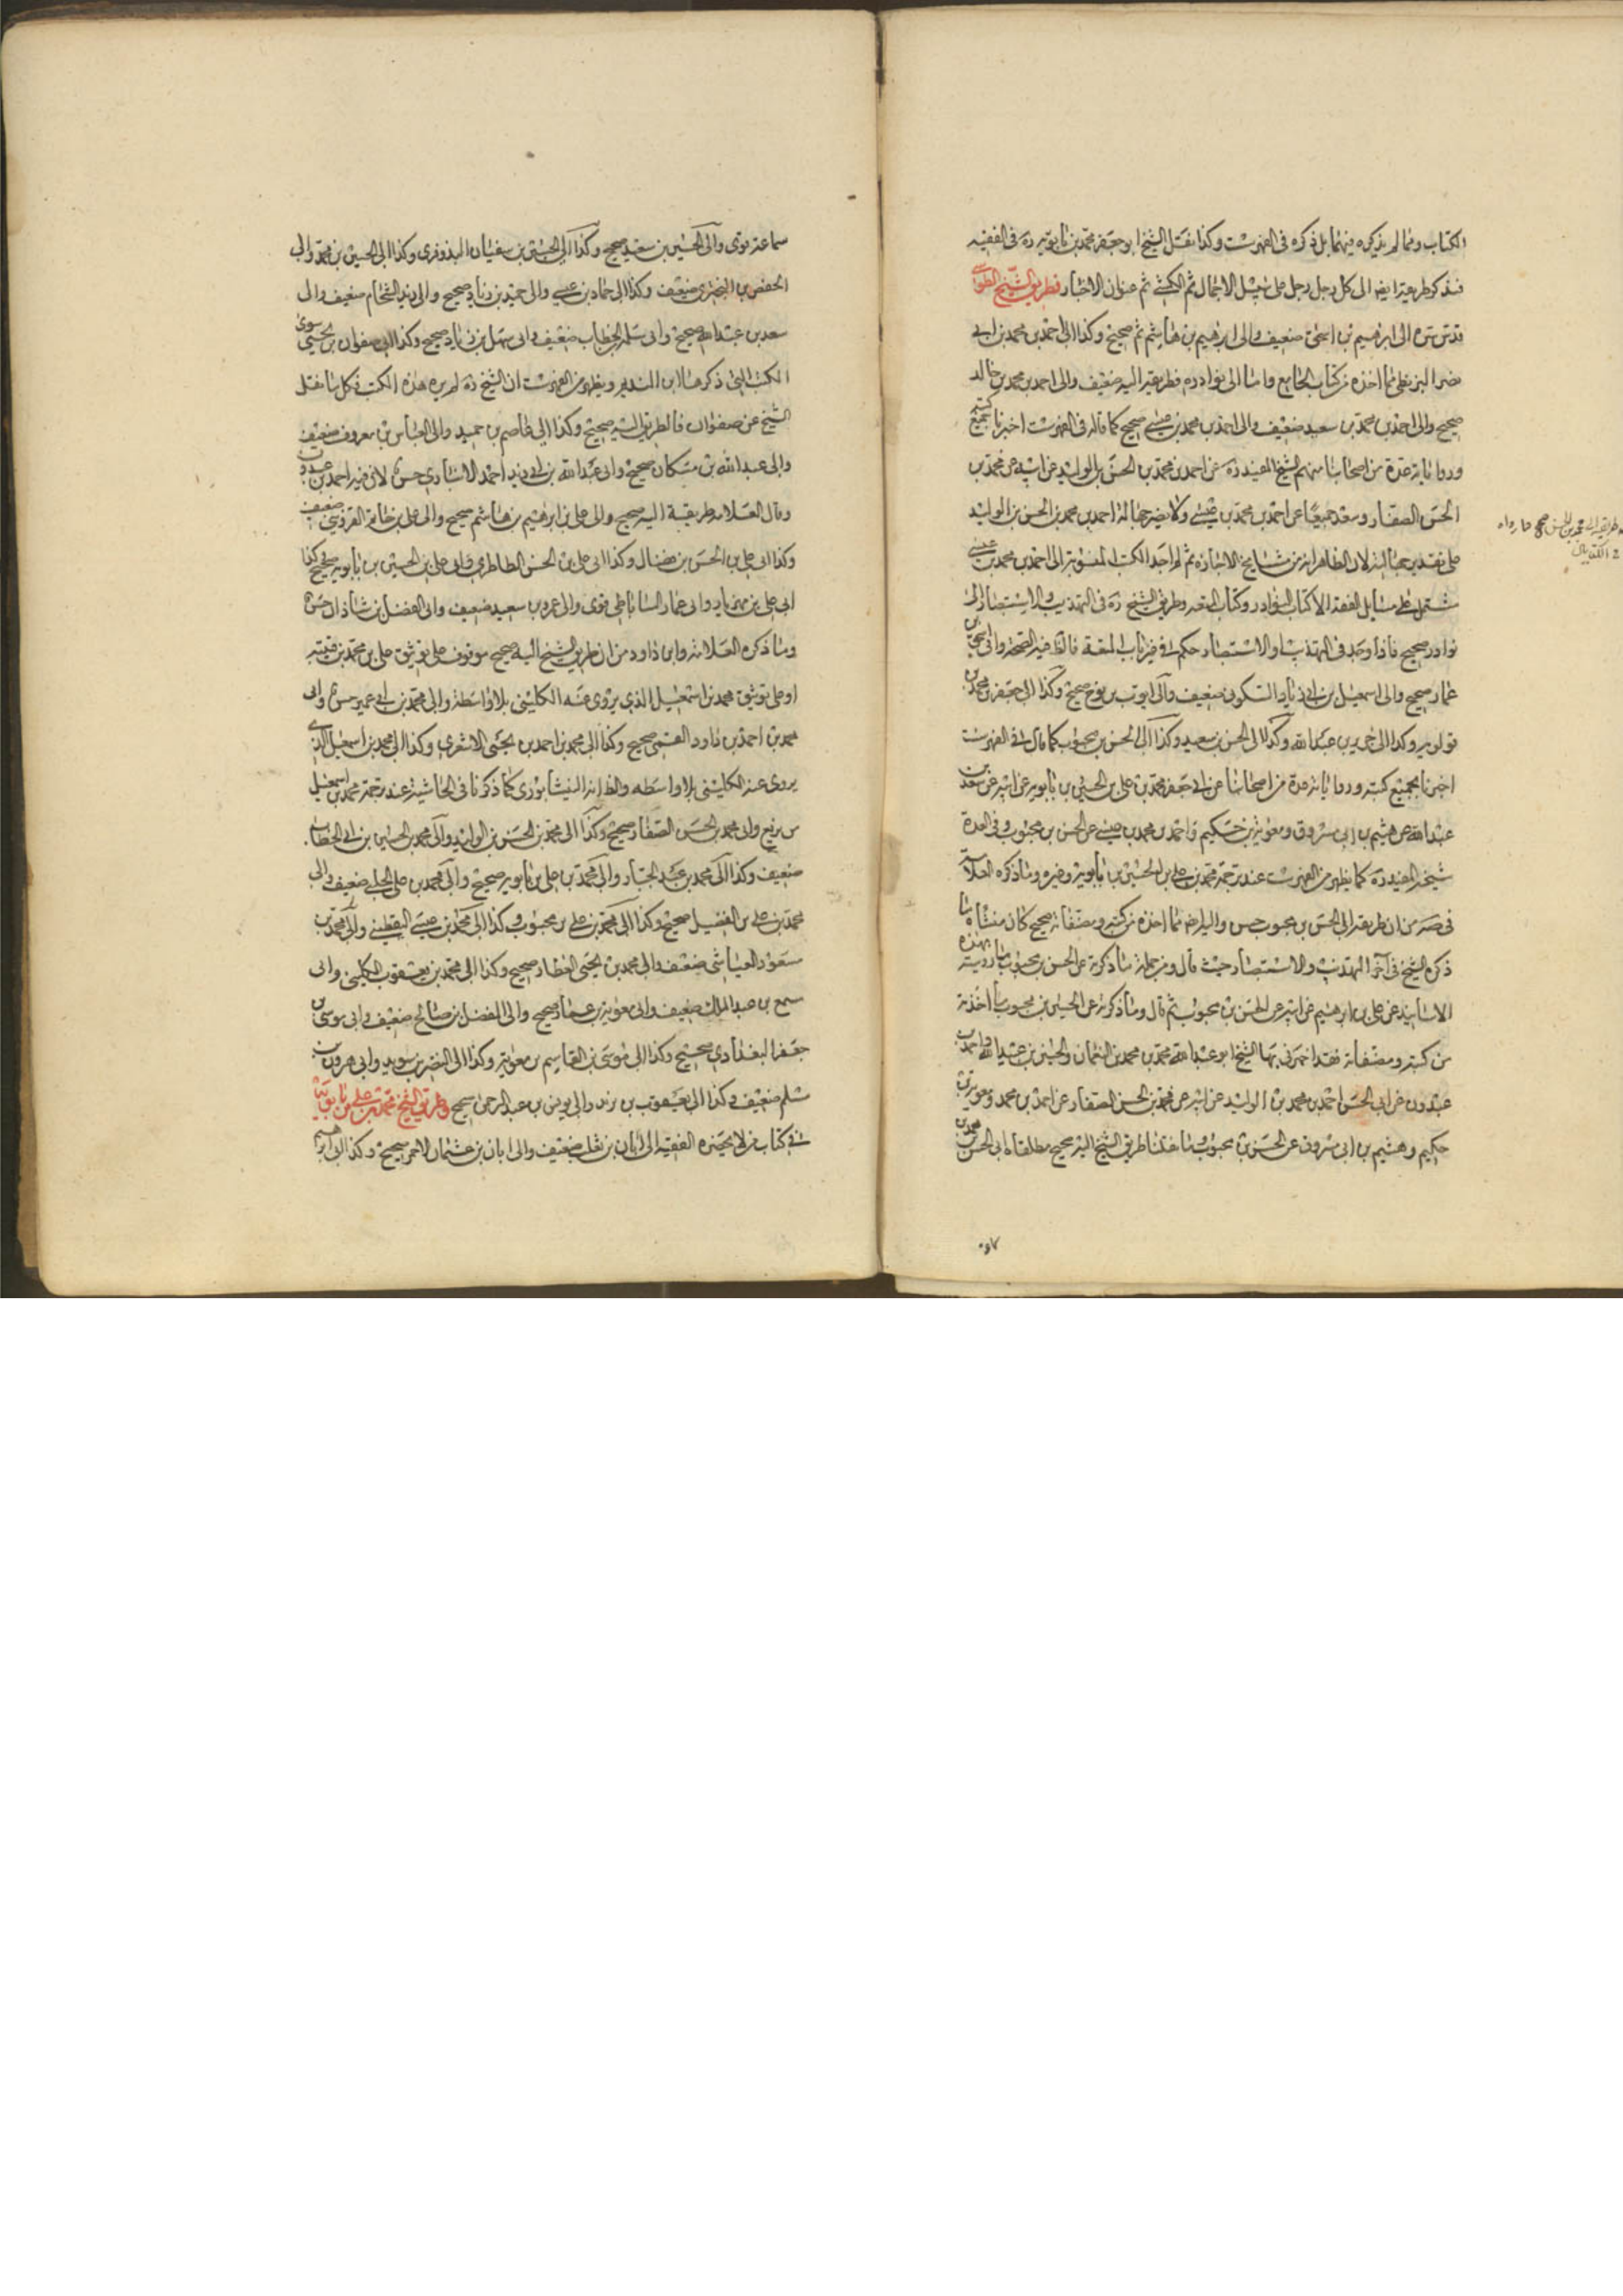 الكتاب ومما لم يذكره فيهما بل ذكره فى الفهرست وكذا نقل الشيخ ابو جعفر محمد بن بابويه ره فى الفقيه
فنذكر طريقه ايضا الى كل رجل رجل على سبيل الاجمال ثم الكشى ثم عنوان الاخبار فطريق الشيخ الطوسى
قدس سره الى ابرهيم بن اسحق ضعيف والى ابرهيم بن هاشم صحيح وكذا الى احمد بن محمد بن ابى
نصر البزنطى مما اخذه من كتاب الجامع واما الى نوادره فطريقه اليه ضعيف والى احمد بن محمد بن خالد
صحيح والى احمد بن محمد بن سعيد ضعيف والى احمد بن محمد بن عيسى صحيح كما قاله فى الفهرست اخبرنا بجميع كتبه
ورواياته عدة من اصحابنا منهم الشيخ المفيد ره عن احمد بن محمد بن الحسن بن الوليد عن ابيه عن محمد بن
الحسن الصفار وسعد جميعا عن احمد بن محمد بن عيسى ولا يضر جهالة احمد بن محمد بن الحسن بن الوليد
على تقدير جهالته لان الظاهر انه من مشايخ الاجازه ثم لم اجد الكتب المنسوبة الى احمد بن محمد بن عيسى
تشتمل على مسايل الفقه الا كتاب النوادر وكتاب المتعه وطريق الشيخ ره فى التهذيب والاستبصار الى
نوادره صحيح فاذا وجد فى التهذيب او الاستبصار حكم فى غير باب المتعة فالظ فيه الصحة والى اسحق بن
عمار صحيح والى اسمعيل بن ابى زياد السكونى ضعيف والى ايوب بن نوح صحيح وكذا الى جعفر بن محمد بن
قولويه وكذا الى حريز بن عبد الله وكذا الى الحسن بن سعيد وكذا الى الحسن بن محبوب كما قال فى الفهرست
اخبرنا بجميع كتبه ورواياته عدة من اصحابنا عن ابى جعفر محمد بن على بن الحسين بن بابويه عن ابيه عن سعد بن
عبد الله عن هيثم بن ابى مسروق ومعوية بن حكيم واحمد بن محمد بن عيسى عن الحسن بن محبوب وفى العدة
شيخه المفيد ره كما يظهر من الفهرست عند ترجمة محمد بن على بن الحسين بن بابويه وغيره وما ذكره العلامة
فى صه من ان طريقه الى الحسن بن محبوب حسن واليه ايضا مما اخذه من كتبه ومصنفاته صحيح كان منشاه ما
ذكره الشيخ فى آخر التهذيب والاستبصار حيث قال ومن جملة ما ذكرته عن الحسن بن محبوب ما رويته بهذه
الاسانيد عن على بن ابرهيم عن ابيه عن الحسن بن محبوب ثم قال وما ذكرته عن الحسن بن محبوب ما اخذته
من كتبه ومصنفاته فقد اخبرنى بها الشيخ ابو عبد الله محمد بن محمد بن النعمان والحسين بن عبيد الله واحمد بن
عبدون عن ابى الحسن احمد بن محمد بن الوليد عن ابيه عن محمد بن الحسن الصفار عن احمد بن محمد ومعوية بن
حكيم وهيثم بن ابى مسروق عن الحسن بن محبوب طريق الشيخ اليه صحيح مطلقا الى الحسن بن محمد بن
طريقه الى محمد بن الحسن صحيح
سماعة موثق والى الحسين بن سعيد صحيح وكذا الى الحسين بن سفيان البزوفرى وكذا الى الحسين بن محمد والى
الحفص بن البخترى ضعيف وكذا الى حماد بن عيسى والى حميد بن زياد صحيح والى زيد الشحام ضعيف والى
سعد بن عبد الله صحيح والى سلمة الخطاب ضعيف والى سهل بن زياد صحيح وكذا الى صفوان بن يحيى سوى
الكتب التى ذكرها ابن النديم ويظهر من الفهرست ان الشيخ ره لم يره هذه الكتب فكل ما نقل
الشيخ عن صفوان فالطريق اليه صحيح وكذا الى عاصم بن حميد والى العباس بن معروف ضعيف
والى عبد الله بن مسكان صحيح والى عبد الله بن ابى زيد احمد الانبارى حسن لان فيه احمد بن عبدون
وقال العلامه طريقه اليه صحيح والى على بن ابرهيم بن هاشم صحيح والى على بن حاتم القزوينى ضعيف
وكذا الى على بن الحسن بن فضال وكذا الى على بن الحسن الطاطرى والى على بن الحسين بن بابويه صحيح كذا
الى على بن مهزيار والى عمار الساباطى قوى والى عمرو بن سعيد ضعيف والى الفضل بن شاذان حسن
وما ذكره العلامة وابن داود من ان طريق الشيخ اليه صحيح موقوف على توثيق على بن محمد بن قتيبه
او على توثيق محمد بن اسمعيل الذى يروى عنه الكلينى بلا واسطة والى محمد بن ابى عمير حسن والى
محمد بن احمد بن داود القمى صحيح وكذا الى محمد بن احمد بن يحيى الاشعرى وكذا الى محمد بن اسمعيل الذى
يروى عنه الكلينى بلا واسطه والظ انه النيشابورى كما ذكرنا فى الحاشية عند ترجمة محمد بن اسمعيل
بن بزيع والى محمد بن الحسن الصفار صحيح وكذا الى محمد بن الحسن بن الوليد والى محمد بن الحسين بن ابى الخطاب
ضعيف وكذا الى محمد بن عبد الجبار والى محمد بن على بن بابويه صحيح والى محمد بن على الحلبى ضعيف والى
محمد بن على بن الفضيل صحيح وكذا الى محمد بن على بن محبوب وكذا الى محمد بن عيسى اليقطينى والى محمد بن
مسعود العياشى ضعيف والى محمد بن يحيى العطار صحيح وكذا الى محمد بن يعقوب الكلينى والى
مسمع بن عبد الملك ضعيف والى معوية بن عمار صحيح والى المفضل بن صالح ضعيف والى موسى بن
جعفر البغدادى صحيح وكذا الى موسى بن القاسم بن معوية وكذا الى النضر بن سويد والى هرون بن
مسلم ضعيف وكذا الى يعقوب بن يزيد والى يونس بن عبد الرحمن صحيح وطريق الشيخ محمد بن على بن بابويه
فى كتاب من لا يحضره الفقيه الى ابان بن تغلب ضعيف والى ابان بن عثمان الاحمر صحيح وكذا الى ابرهيم